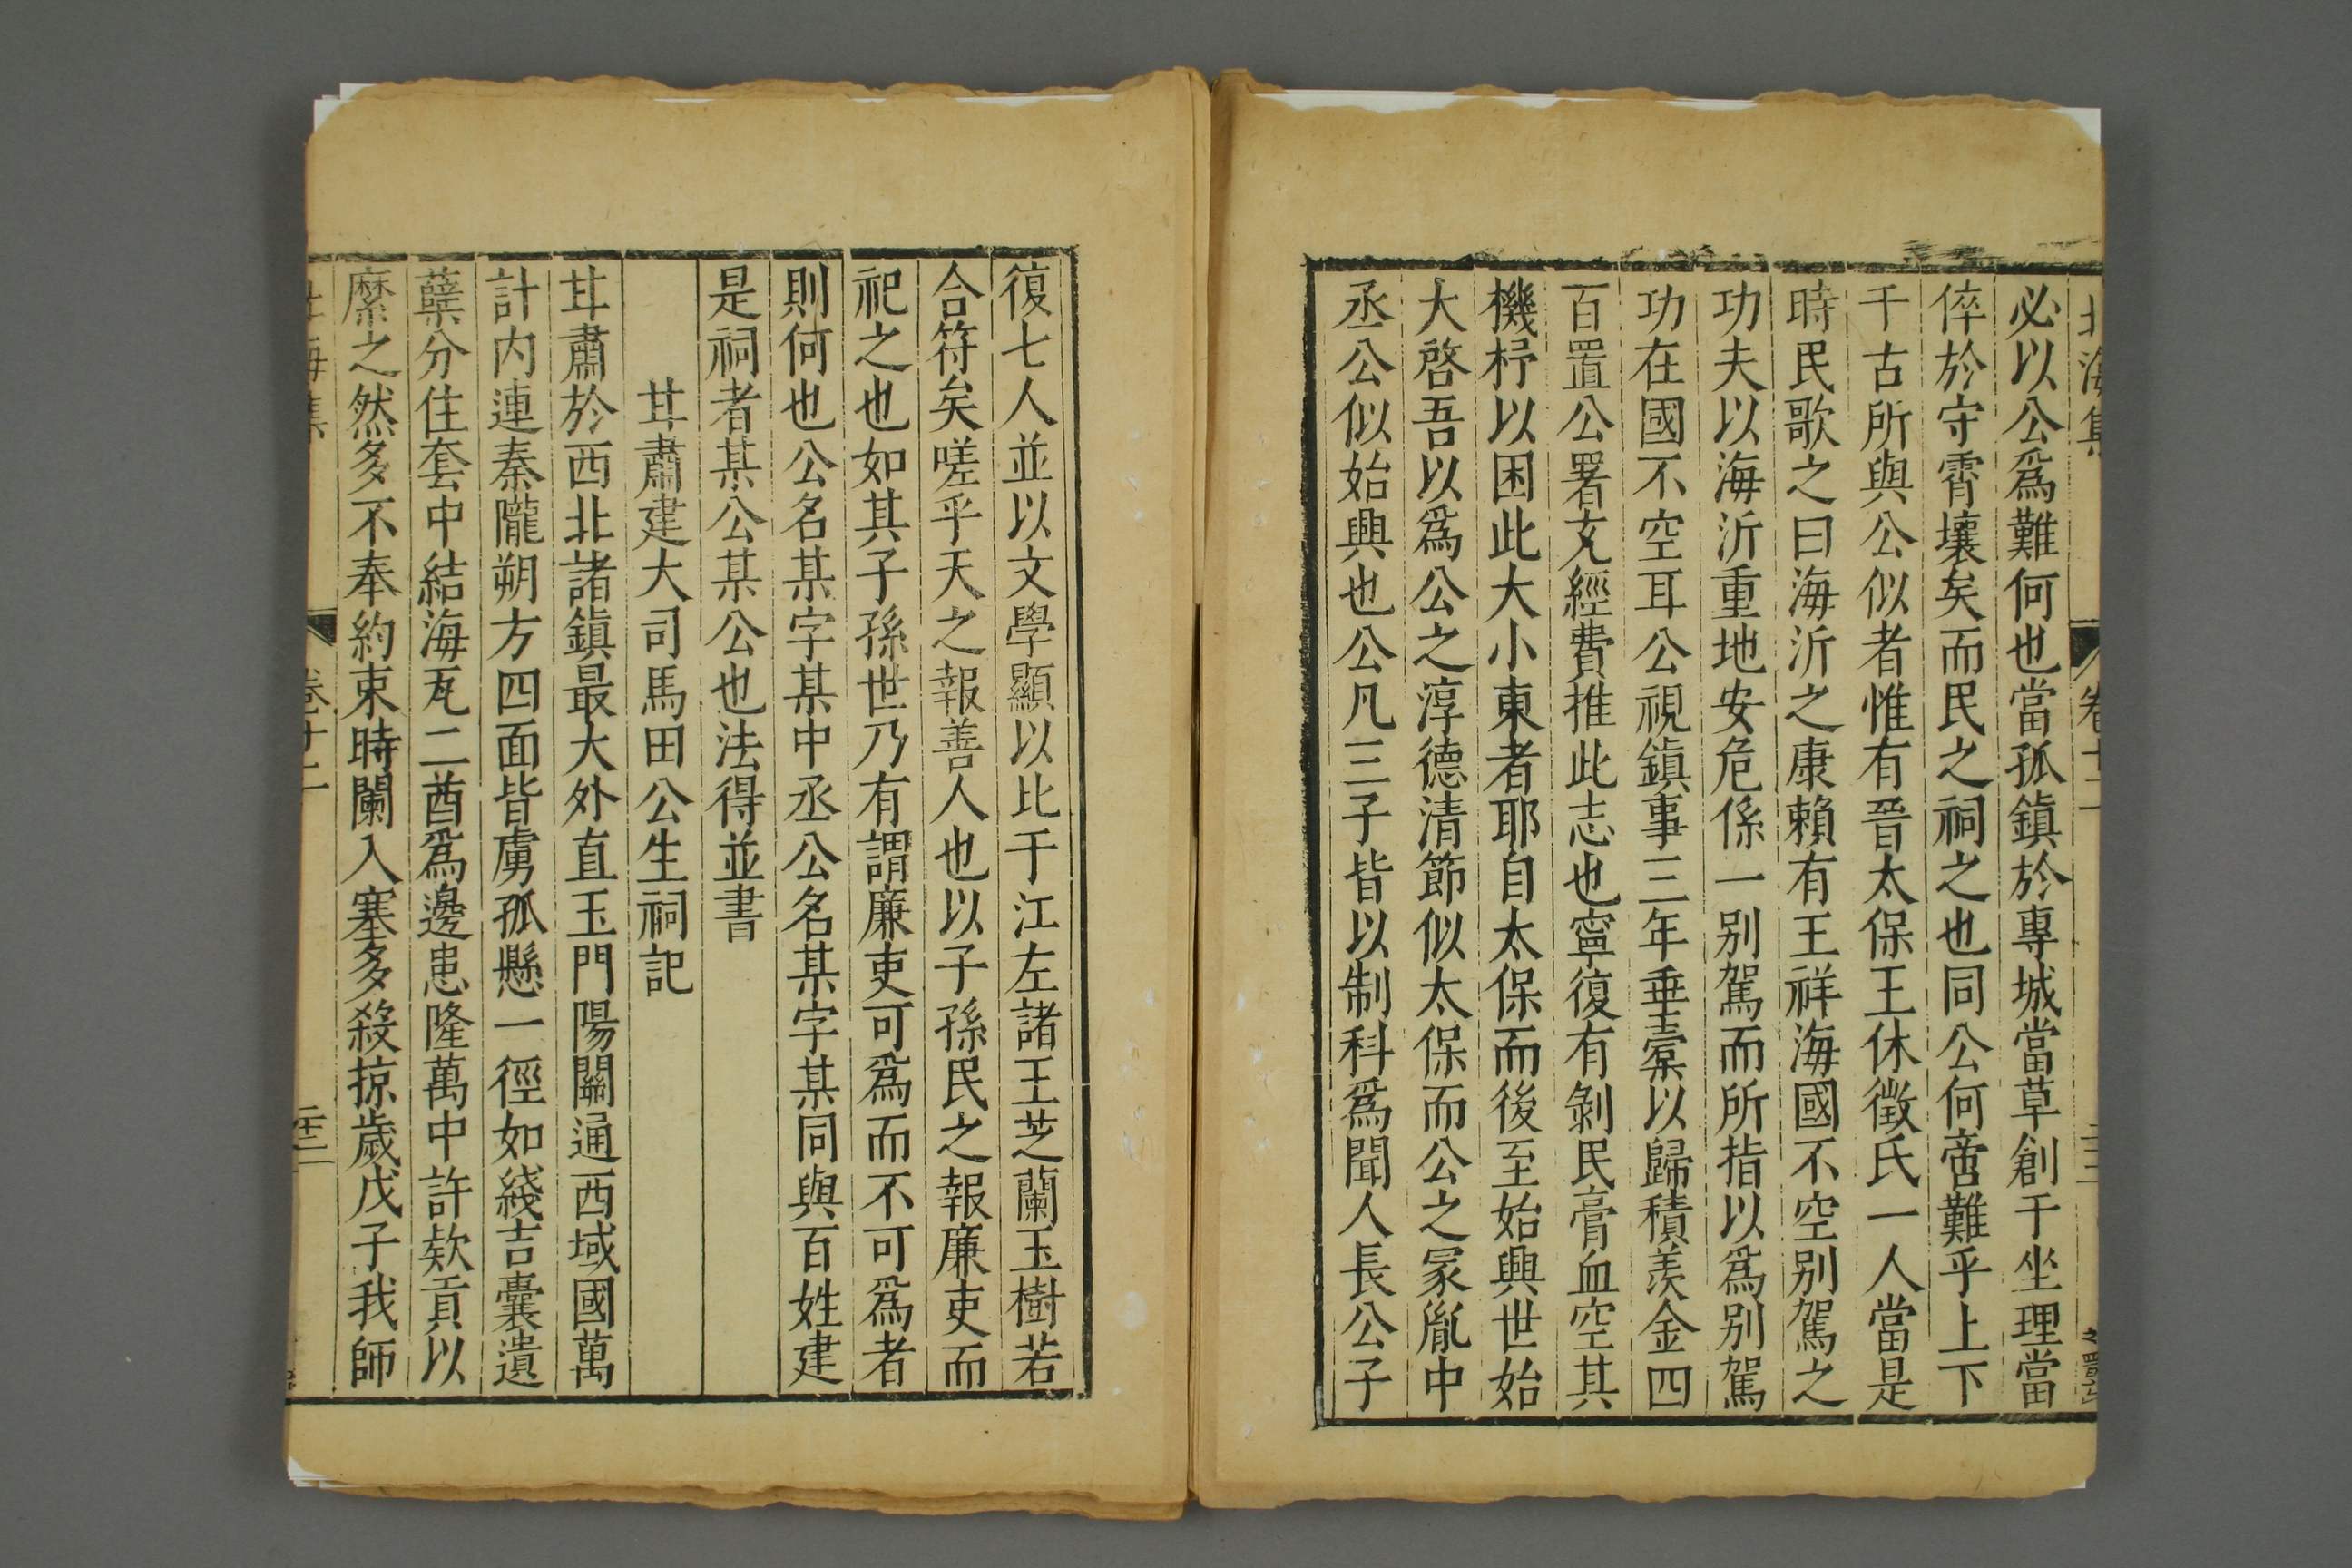 北海集 卷十二
必以公爲難何也當孤鎮於專城當草創于坐理當
倅於守霄壤矣而民之祠之也同公何啻難乎上下
千古所與公似者惟有晉太保王休徵氏一人當是
時民歌之曰海沂之康賴有王祥海國不空别駕之
功夫以海沂重地安危係一别駕而所指以爲别駕
功在國不空耳公視鎮事三年垂橐以歸積羡金四
百置公署充經費推此志也寧復有剝民膏血空其
機杼以困此大小東者耶自太保而後至始興世始
大啓吾以爲公之淳德清節似太保而公之冢胤中
丞公似始興也公凡三子皆以制科爲聞人長公子
復七人並以文學顯以比于江左諸王芝蘭玉樹若
合符矣嗟乎天之報善人也以子孫民之報廉吏而
祀之也如其子孫世乃有謂廉吏可爲而不可爲者
則何也公名某字某中丞公名某字某同與百姓建
是祠者某公某公也法得並書
甘肅建大司馬田公生祠記
甘肅於西北諸鎮最大外直玉門陽關通西域國萬
計内連秦隴朔方四面皆虜孤懸一徑如綫吉囊遺
蘖分住套中結海瓦二酋爲邊患隆萬中許欵貢以
縻之然多不奉約束時闌入塞多殺掠歲戊子我師
北海集 卷十二